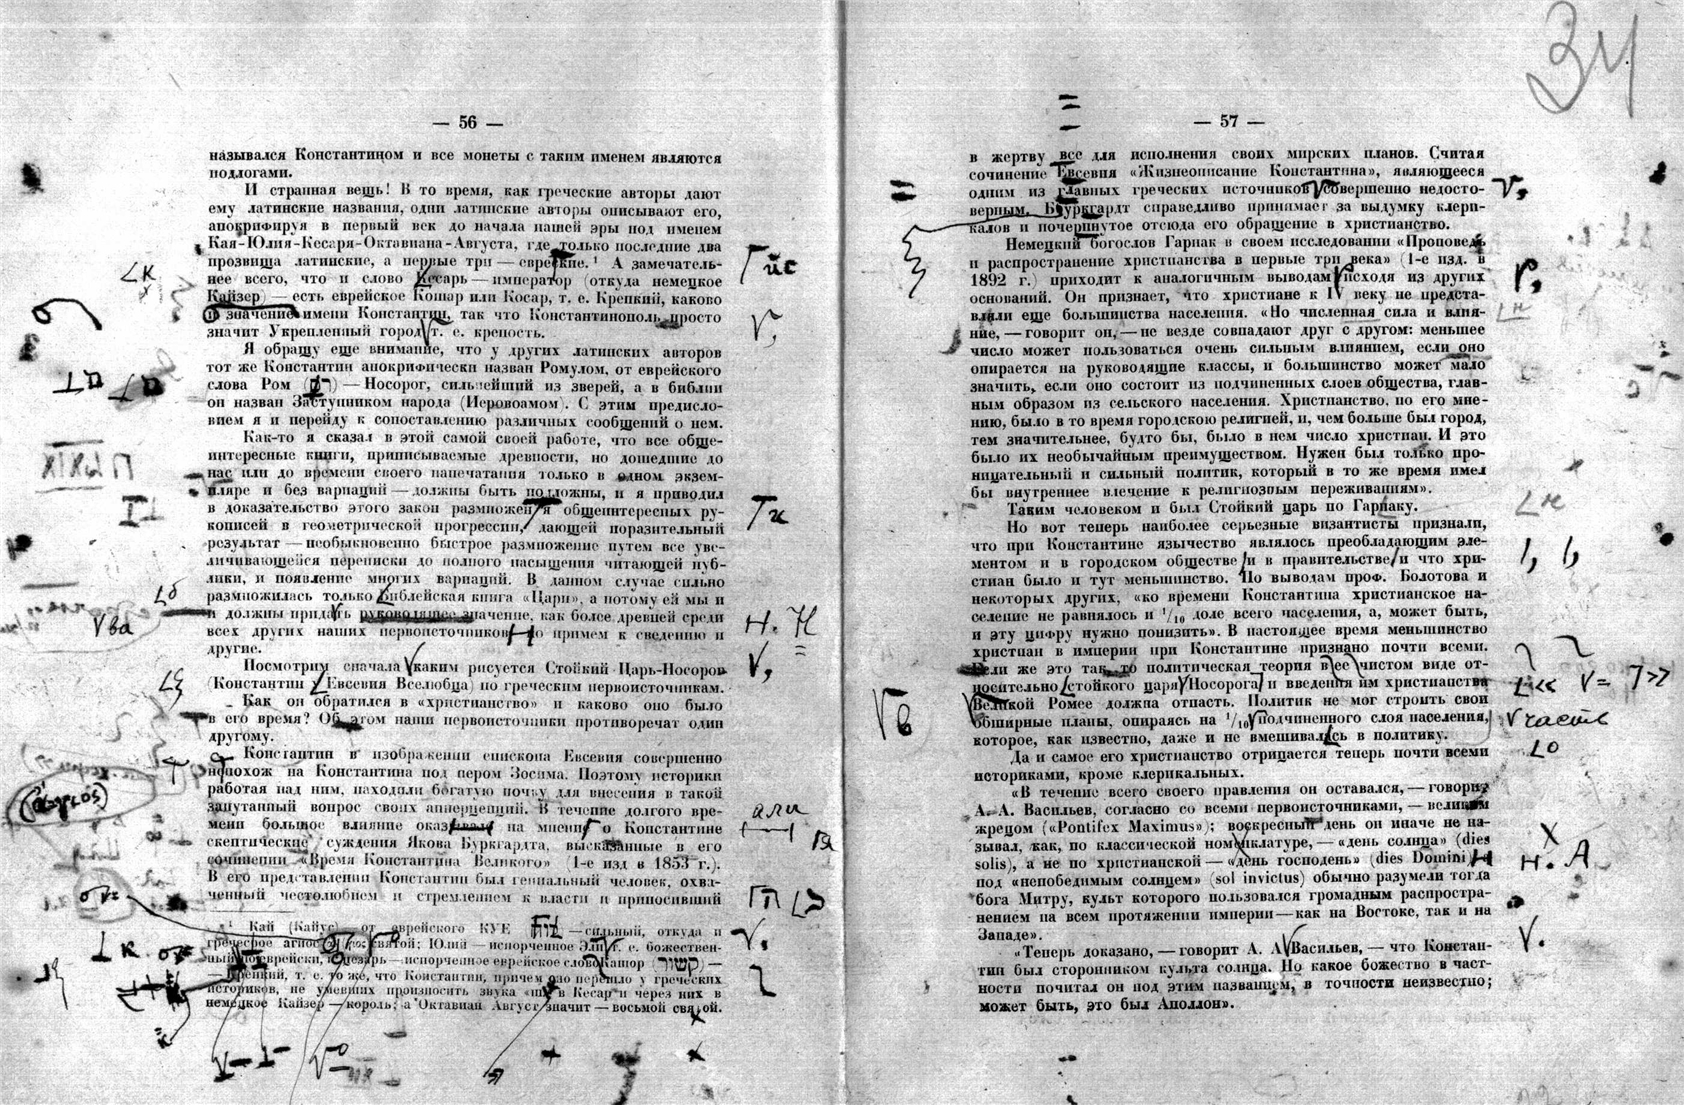 — 56 —
назывался Константином и все монеты с таким именем являются
подлогами.
И странная вещь! В то время, как греческие авторы дают
ему латинские названия, одни латинские авторы описывают его,
апокрифируя в первый век до начала нашей эры под именем
Кая-Юлия-Кесаря-Октавиана-Августа, где только последние два
прозвища латинские, а первые три — еврейские.¹ А замечатель-
нее всего, что и слово Кесарь — император (откуда немецкое
Кайзер) — есть еврейское Кошар или Косар, т. е. Крепкий, каково
и значение имени Константин, так что Константинополь просто
значит Укрепленный город т. е. крепость.
Я обращу еще внимание, что у других латинских авторов
тот же Константин апокрифически назван Ромулом, от еврейского
слова Ром — Носорог, сильнейший из зверей, а в библии
он назван Заступником народа (Иеровоамом). С этим предисло-
вием я и перейду к сопоставлению различных сообщений о нем.
Как-то я сказал в этой самой своей работе, что все обще-
интересные книги, приписываемые древности, но дошедшие до
нас или до времени своего напечатания только в одном экзем-
пляре и без вариаций — должны быть подложны, и я приводил
в доказательство этого закон размножения общеинтересных ру-
кописей в геометрической прогрессии, дающей поразительный
результат — необыкновенно быстрое размножение путем все уве-
личивающейся переписки до полного насыщения читающей пуб-
лики, и появление многих вариаций. В данном случае сильно
размножилась только Библейская книга «Цари», а потому ей мы и
и должны придать руководящее значение, как более древней среди
всех других наших первоисточников но примем к сведению и
другие.
Посмотрим сначала каким рисуется Стойкий Царь-Носорог
(Константин Евсевия Вселюбца) по греческим первоисточникам.
Как он обратился в «христианство» и каково оно было
в его время? Об этом наши первоисточники противоречат один
другому.
Константин в изображении епископа Евсевия совершенно
непохож на Константина под пером Зосима. Поэтому историки
работая над ним, находили богатую почву для внесения в такой
запутанный вопрос своих апперцепций. В течение долгого вре-
мени большое влияние оказывал на мнения о Константине
скептические суждения Якова Буркгардта, высказанные в его
сочинении «Время Константина Великого» (1-е изд в 1853 г.).
В его представлении Константин был гениальный человек, охва-
ченный честолюбием и стремлением к власти и приносивший
¹ Кай (Кайус) от еврейского КУЕ — сильный, откуда и
греческое агиос святой; Юлий — испорченное Эли т. е. божествен-
ный по еврейски, и цезарь — испорченное еврейское слово Кашор (קשור) —
— Крепкий, т. е. то же, что Константин, причем оно перешло у греческих
историков, не умевших произносить звука «ш» в Кесар и через них в
немецкое Кайзер — король; а Октавиан Август значит — восьмой святой.
34
— 57 —
в жертву все для исполнения своих мирских планов. Считая
сочинение Евсевия «Жизнеописание Константина», являющееся
одним из главных греческих источников совершенно недосто-
верным. Буркгардт справедливо принимает за выдумку клери-
калов и почерпнутое отсюда его обращение в христианство.
Немецкий богослов Гарнак в своем исследовании «Проповедь
и распространение христианства в первые три века» (1-е изд. в
1892 г.) приходит к аналогичным выводам исходя из других
оснований. Он признает, что христиане к IV веку не предста-
вляли еще большинства населения. «Но численная сила и влия-
ние, — говорит он, — не везде совпадают друг с другом: меньшее
число может пользоваться очень сильным влиянием, если оно
опирается на руководящие классы, и большинство может мало
значить, если оно состоит из подчиненных слоев общества, глав-
ным образом из сельского населения. Христианство, по его мне-
нию, было в то время городскою религией, и, чем больше был город,
тем значительнее, будто бы, было в нем число христиан. И это
было их необычайным преимуществом. Нужен был только про-
ницательный и сильный политик, который в то же время имел
бы внутреннее влечение к религиозным переживаниям».
Таким человеком и был Стойкий царь по Гарнаку.
Но вот теперь наиболее серьезные византисты признали,
что при Константине язычество являлось преобладающим эле-
ментом и в городском обществе и в правительстве и что хри-
стиан было и тут меньшинство. По выводам проф. Болотова и
некоторых других, «ко времени Константина христианское на-
селение не равнялось и 1/10 доле всего населения, а, может быть,
и эту цифру нужно понизить». В настоящее время меньшинство
христиан в империи при Константине признано почти всеми.
Если же это так, то политическая теория в ее чистом виде от-
носительно стойкого царя Носорога и введения им христианства
Великой Ромее должна отпасть. Политик не мог строить свои
обширные планы, опираясь на 1/10 подчиненного слоя населения,
которое, как известно, даже и не вмешивалось в политику.
Да и самое его христианство отрицается теперь почти всеми
историками, кроме клерикальных.
«В течение всего своего правления он оставался, — говорит
А. А. Васильев, согласно со всеми первоисточниками, — великим
жрецом («Pontifex Maximus»); воскресный день он иначе не на-
зывал, как, по классической номенклатуре, — «день солнца» (dies
solis), а не по христианской — «день господень» (dies Domini)
под «непобедимым солнцем» (sol invictus) обычно разумели тогда
бога Митру, культ которого пользовался громадным распростра-
нением на всем протяжении империи — как на Востоке, так и на
Западе».
«Теперь доказано, — говорит А. А Васильев, — что Констан-
тин был сторонником культа солнца. Но какое божество в част-
ности почитал он под этим названием, в точности неизвестно;
может быть, это был Аполлон».
часть